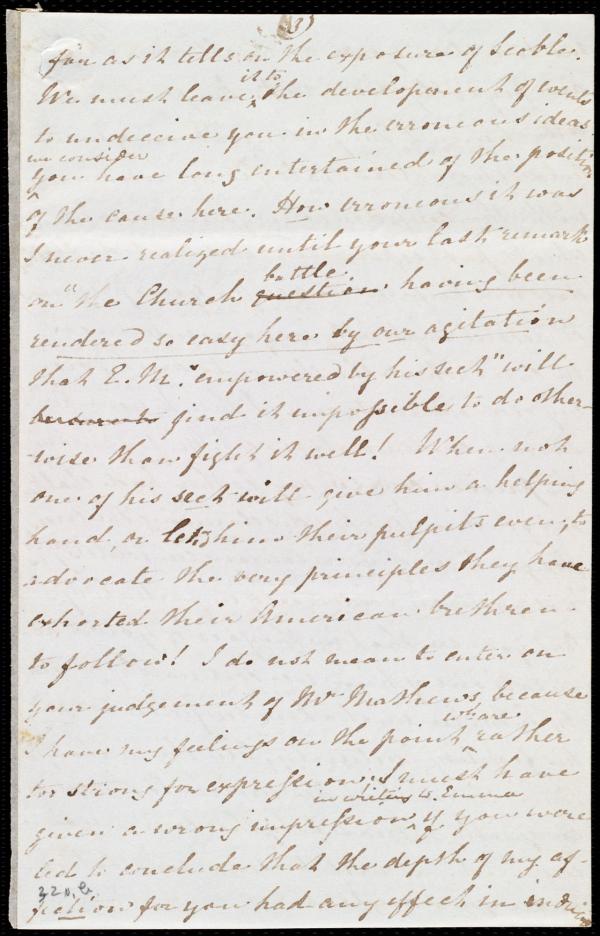 (3)
far as it tells on the exposure of Scoble.
We must leave it to the development of events
to undeceive you in the erroneous ideas
we consider
you have long entertained of the position
of the cause here. How erroneous it was
I never realized until your last remark
battle
on "the Church question having been
rendered so easy here by our agitation
that E. M. "empowered by his sect" will
find it impossible to do other-
wise than fight it well! When not
one of his sect will give him a helping
hand, or let him their pulpits even, to
advocate the very principles they have
exhorted their American brethren
to follow! I do not mean to enter on
your judgement of Mr Mathews, because
who are
I have my feelings on the point rather
too strong for expression. I must have
in writing to Emma
given a wrong impression if you were
led to conclude that the depth of my af-
fection for you had any effect in